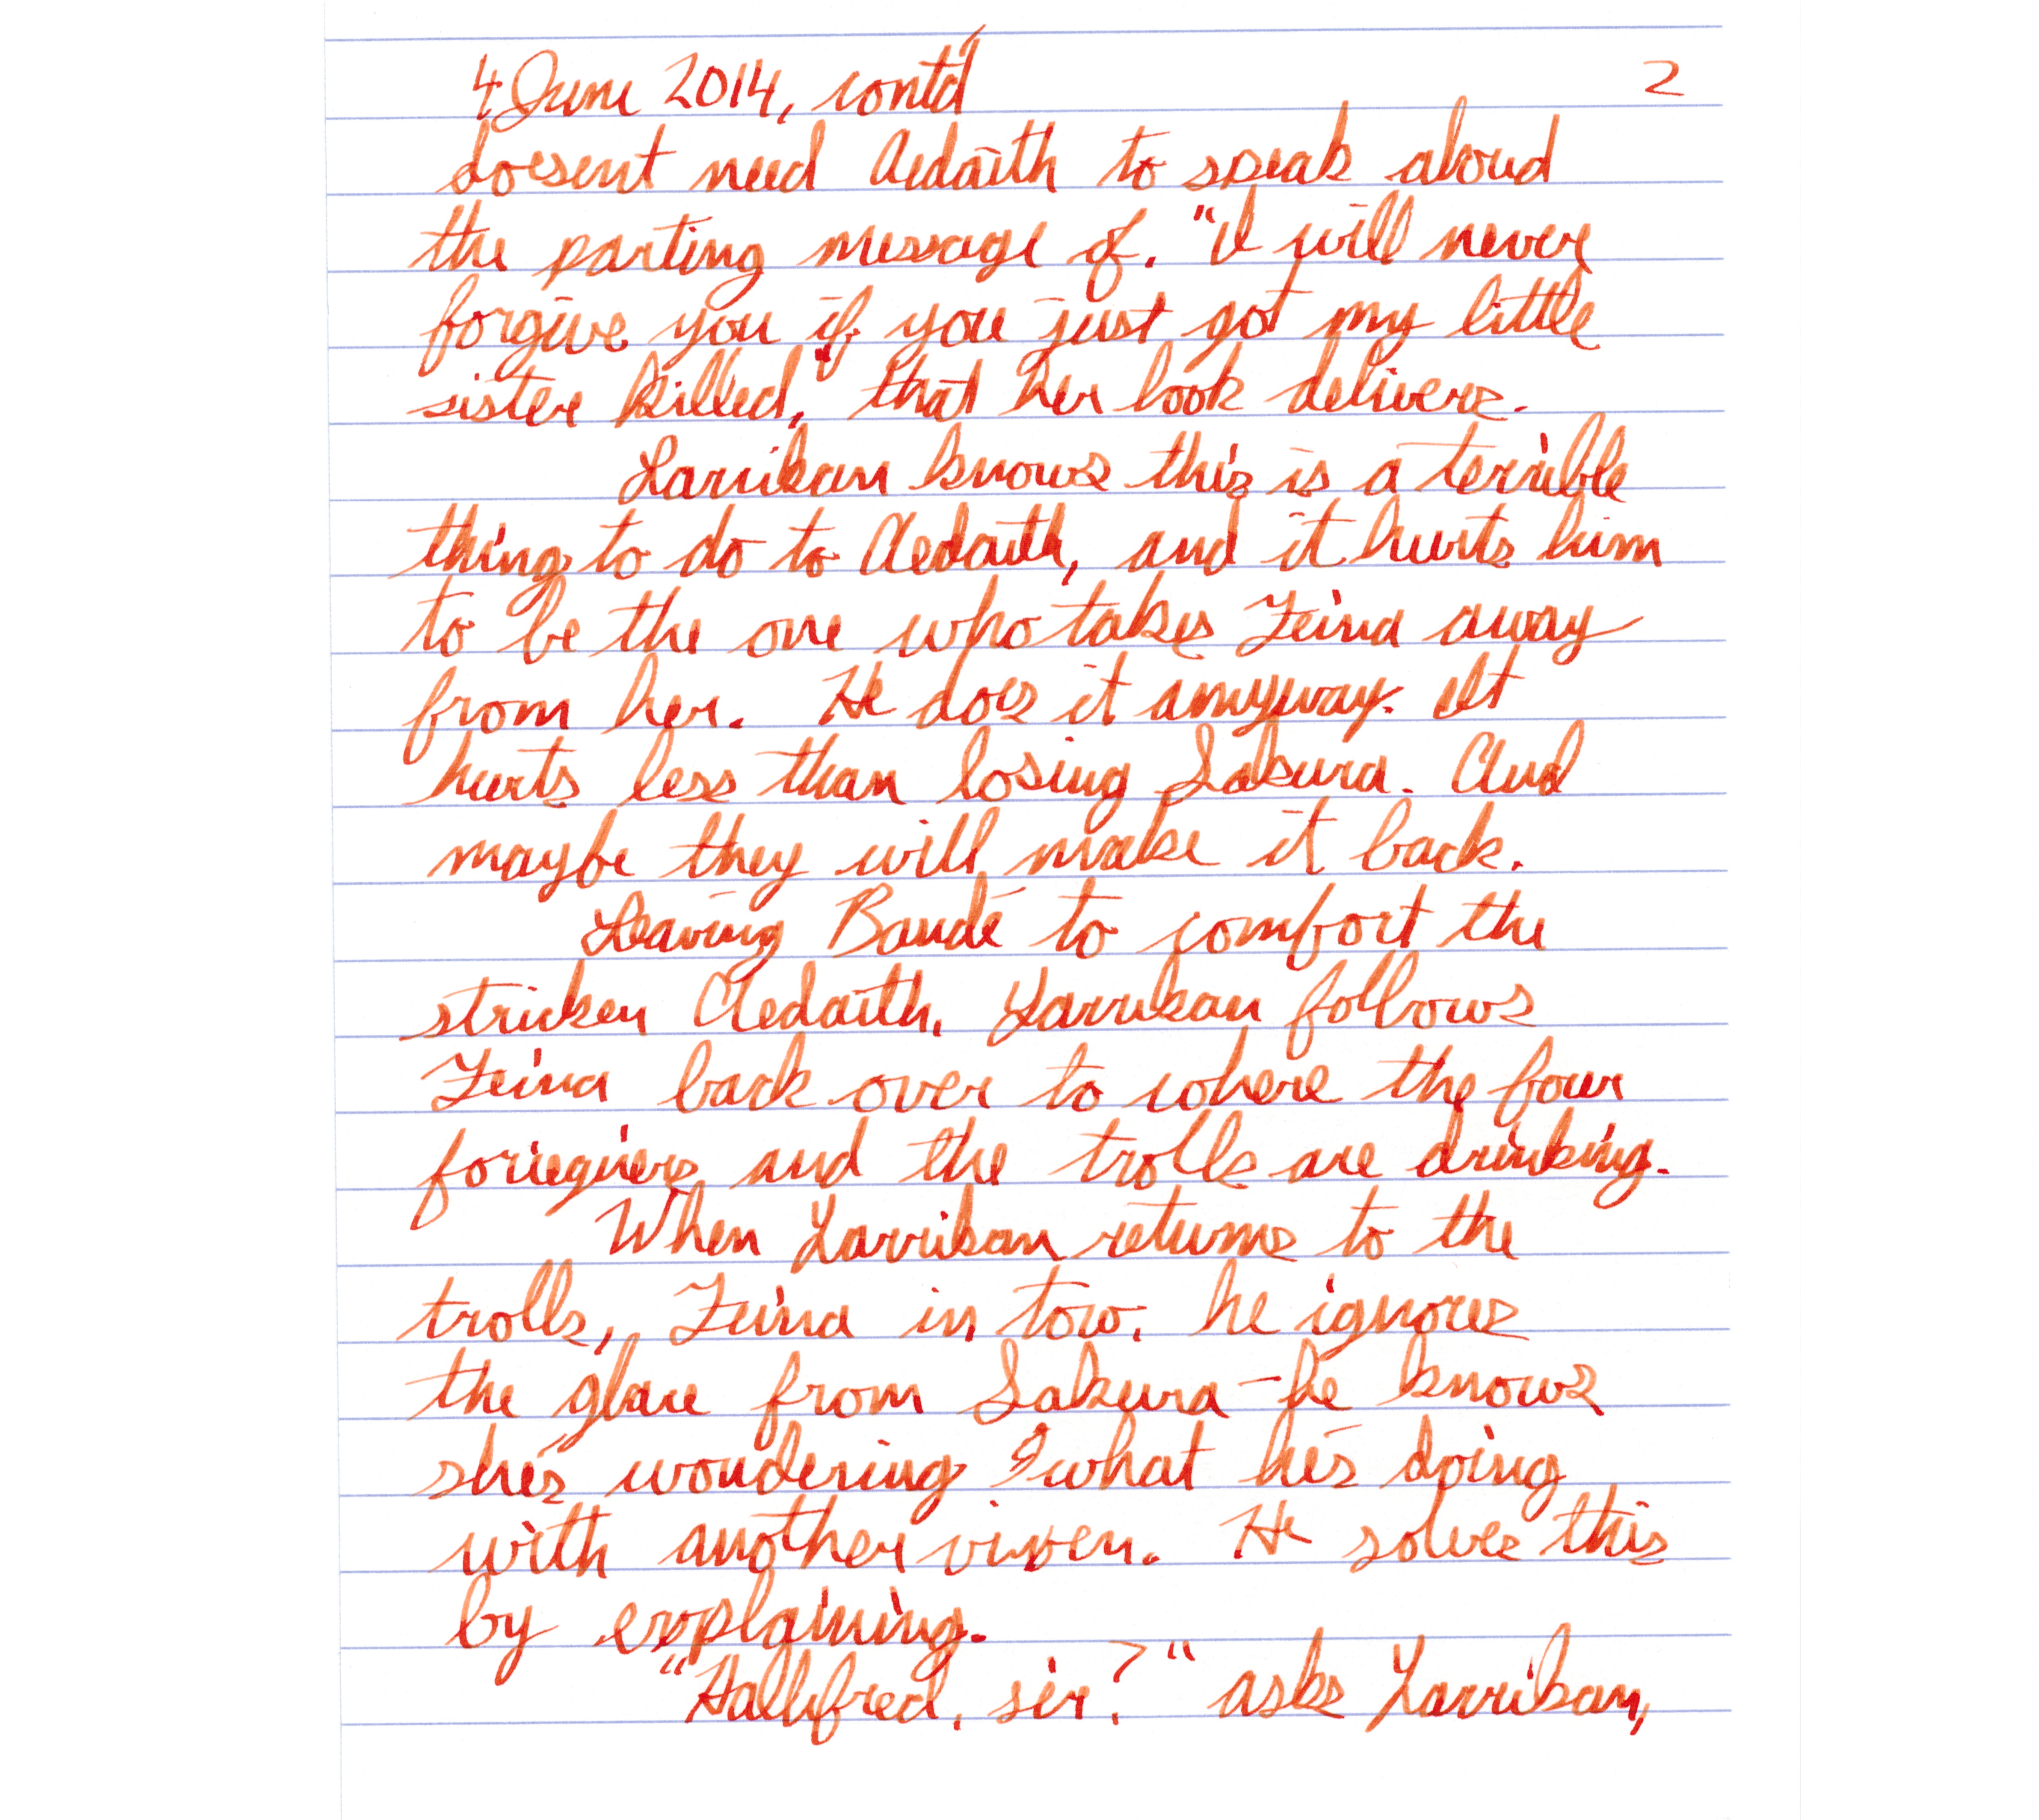 4 June 2014, cont'd 2
doesent need Aedaith to speak aloud
the parting message of. "I will never
forgive you if you just got my little
sister killed," that her look delivers.
Larrikan knows this is a terrible
thing to do to Aedaith, and it hurts him
to be the one who takes Zeina away
from her. He does it anyway. It
hurts less than losing Sakura. And
maybe they will make it back.
Leaving Baudé to comfort the
stricken Aedaith, Larrikan follows
Zeina back over to where the four
foriegners and the trolls are drinking.
When Larrikan returns to the
trolls, Zeina in tow, he ignores
the glare from Sakura - he knows
she's wondering what he's doing
with another vixen. He solves this
by explaining.
"Hallfred, sir?" asks Larrikan,